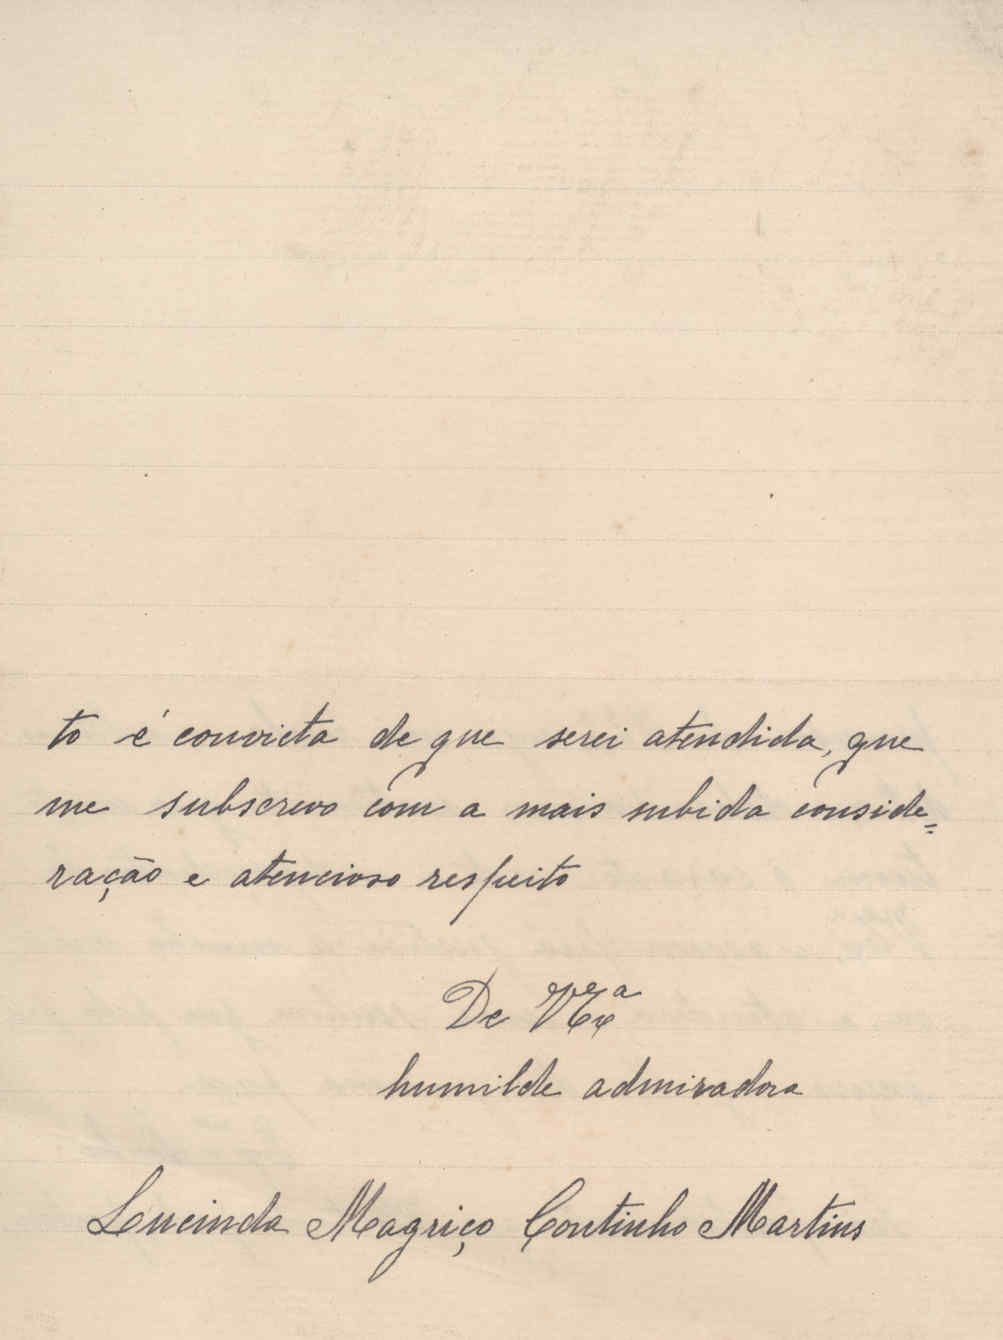 to é convicta de que serei atendida, que
me subscrevo com a mais subida conside=
ração e atencioso respeito
De V Exª
humilde admiradora
Lucinda Magriço Coutinho Martins